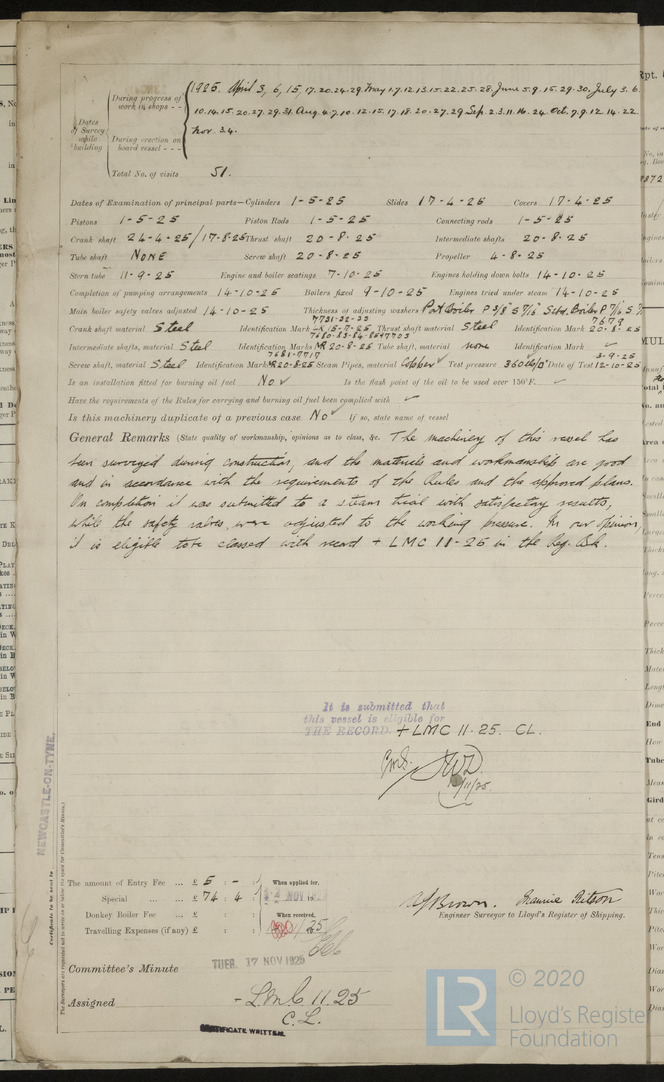 1925. April 3, 6, 15, 17. 20. 24. 29. May 1. 7. 12. 13. 15. 22. 25. 28. June 5. 9. 15. 29. 30. July 3. 6.
Dates of Survey while building
During progress of work in shops - -
10. 14. 15. 20. 27. 29. 31. Aug. 4. 7. 10. 12. 15. 17. 18. 20. 27. 29 Sep. 2. 3. 11. 14. 24. Oct. 7. 9. 12. 14. 22.
During erection on board vessel - - -
Nov. 3. 4.
Total No. of visits 51.
Dates of Examination of principal parts—Cylinders 1-5-25 Slides 17-4-25 Covers 17-4-25
Pistons 1-5-25 Piston Rods 1-5-25 Connecting rods 1-5-25
Crank shaft 24-4-25/17-8-25 Thrust shaft 20-8-25 Intermediate shafts 20-8-25
Tube shaft NONE Screw shaft 20-8-25 Propeller 4-8-25
Stern tube 11-9-25 Engine and boiler seatings 7-10-25 Engines holding down bolts 14-10-25
Completion of pumping arrangements 14-10-25 Boilers fixed 9-10-25 Engines tried under steam 14-10-25
Main boiler safety valves adjusted 14-10-25 Thickness of adjusting washers Port Boiler P 3/8 S 7/16 Star. Boiler P 7/16 S
7731-32-33 7679
Crank shaft material Steel Identification Mark 15-7-25 Thrust shaft material Steel Identification Mark 20-8-25
7680-83-84-86
Intermediate shafts, material Steel Identification Marks MR 20-8-25 Tube shaft, material none Identification Mark ✓
7681-7717 3-9-25
Screw shaft, material Steel Identification Mark MR 20-8-25 Steam Pipes, material Copper ✓ Test pressure 360 lbs/□" Date of Test 12-10-25
Is an installation fitted for burning oil fuel No ✓ Is the flash point of the oil to be used over 150°F. ✓
Have the requirements of the Rules for carrying and burning oil fuel been complied with ✓
Is this machinery duplicate of a previous case No ✓ If so, state name of vessel
General Remarks (State quality of workmanship, opinions as to class, &c. The machinery of this vessel has
been surveyed during construction, and the materials and workmanship are good
and in accordance with the requirements of the Rules and the approved plans.
On completion it was submitted to a steam trial with satisfactory results,
while the safety valves were adjusted to the working pressure. In our opinion,
it is eligible to be classed with record + LMC 11-25 in the Reg. Bk.
It is submitted that
this vessel is eligible for
THE RECORD. + LMC 11.25. CL.
11/25.
NEWCASTLE-ON-TYNE.
Certificate to be sent to
The amount of Entry Fee ... £ 5 : - : When applied for,
Special ... £ 74 : 4 : NOV
Donkey Boiler Fee ... £ : : When received,
Travelling Expenses (if any) £ : :
Brown. Maurice Ritson
Engineer Surveyor to Lloyd's Register of Shipping.
Committee's Minute TUES. 17 NOV 1925
Assigned - L.M.C. 11.25
C.L.
CERTIFICATE WRITTEN.
LR
© 2020
Lloyd's Register
Foundation